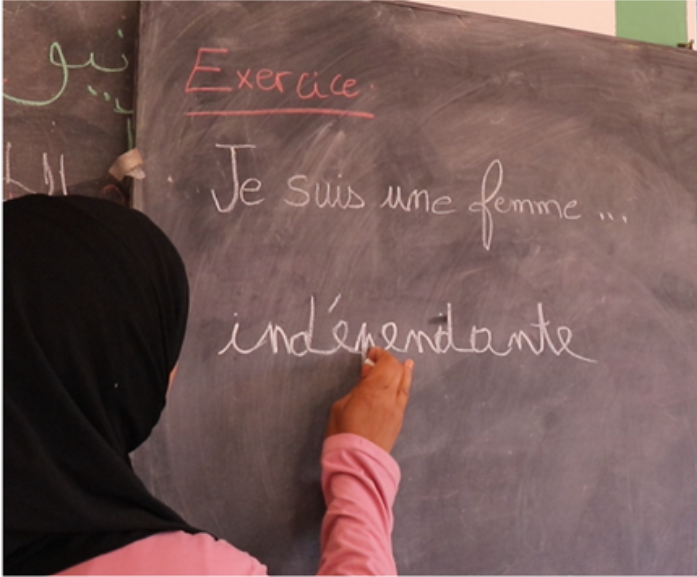 Exercice.
Je suis une femme...
indépendante